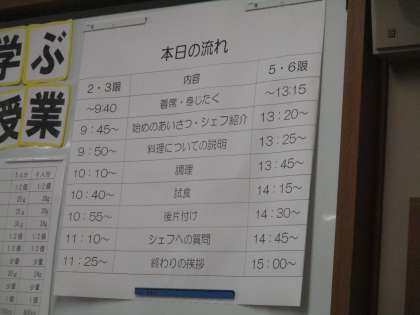 学ぶ
授業
本日の流れ
2・3限 内容 5・6限
～9:40 着席・身じたく ～13:15
9：45～ 始めのあいさつ・シェフ紹介 13：20～
9：50～ 料理についての説明 13：25～
10：10～ 調理 13：45～
10：40～ 試食 14：15～
10：55～ 後片付け 14：30～
11：10～ シェフへの質問 14：45～
11：25～ 終わりの挨拶 15：00～